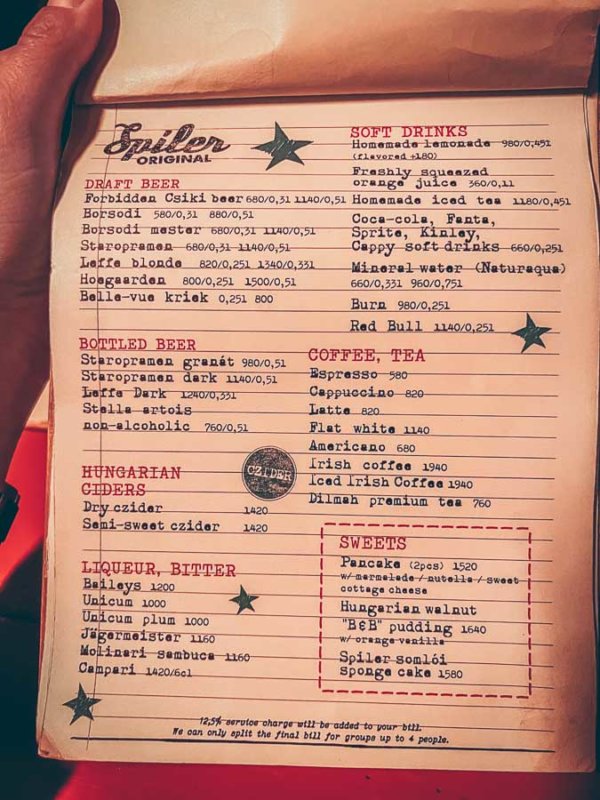 Spíler
ORIGINAL
DRAFT BEER
Forbidden Csiki beer 680/0,3l 1140/0,5l
Borsodi 580/0,3l 880/0,5l
Borsodi mester 680/0,3l 1140/0,5l
Staropramen 680/0,3l 1140/0,5l
Leffe blonde 820/0,25l 1340/0,33l
Hoegaarden 800/0,25l 1500/0,5l
Belle-vue kriek 0,25l 800
BOTTLED BEER
Staropramen granát 980/0,5l
Staropramen dark 1140/0,5l
Leffe Dark 1240/0,33l
Stella artois
non-alcoholic 760/0,5l
HUNGARIAN
CIDERS
Dry czider 1420
Semi-sweet czider 1420
CZIDER
LIQUEUR, BITTER
Baileys 1200
Unicum 1000
Unicum plum 1000
Jägermeister 1160
Molinari sambuca 1160
Campari 1420/6cl
SOFT DRINKS
Homemade lemonade 980/0,45l
(flavored +180)
Freshly squeezed
orange juice 360/0,1l
Homemade iced tea 1180/0,45l
Coca-cola, Fanta,
Sprite, Kinley,
Cappy soft drinks 660/0,25l
Mineral water (Naturaqua)
660/0,33l 960/0,75l
Burn 980/0,25l
Red Bull 1140/0,25l
COFFEE, TEA
Espresso 580
Cappuccino 820
Latte 820
Flat white 1140
Americano 680
Irish coffee 1940
Iced Irish Coffee 1940
Dilmah premium tea 760
SWEETS
Pancake (2pcs) 1520
w/ marmelade / nutella / sweet
cottage cheese
Hungarian walnut
"B&B" pudding 1640
w/ orange vanilla
Spíler somlói
sponge cake 1580
12,5% service charge will be added to your bill.
We can only split the final bill for groups up to 4 people.